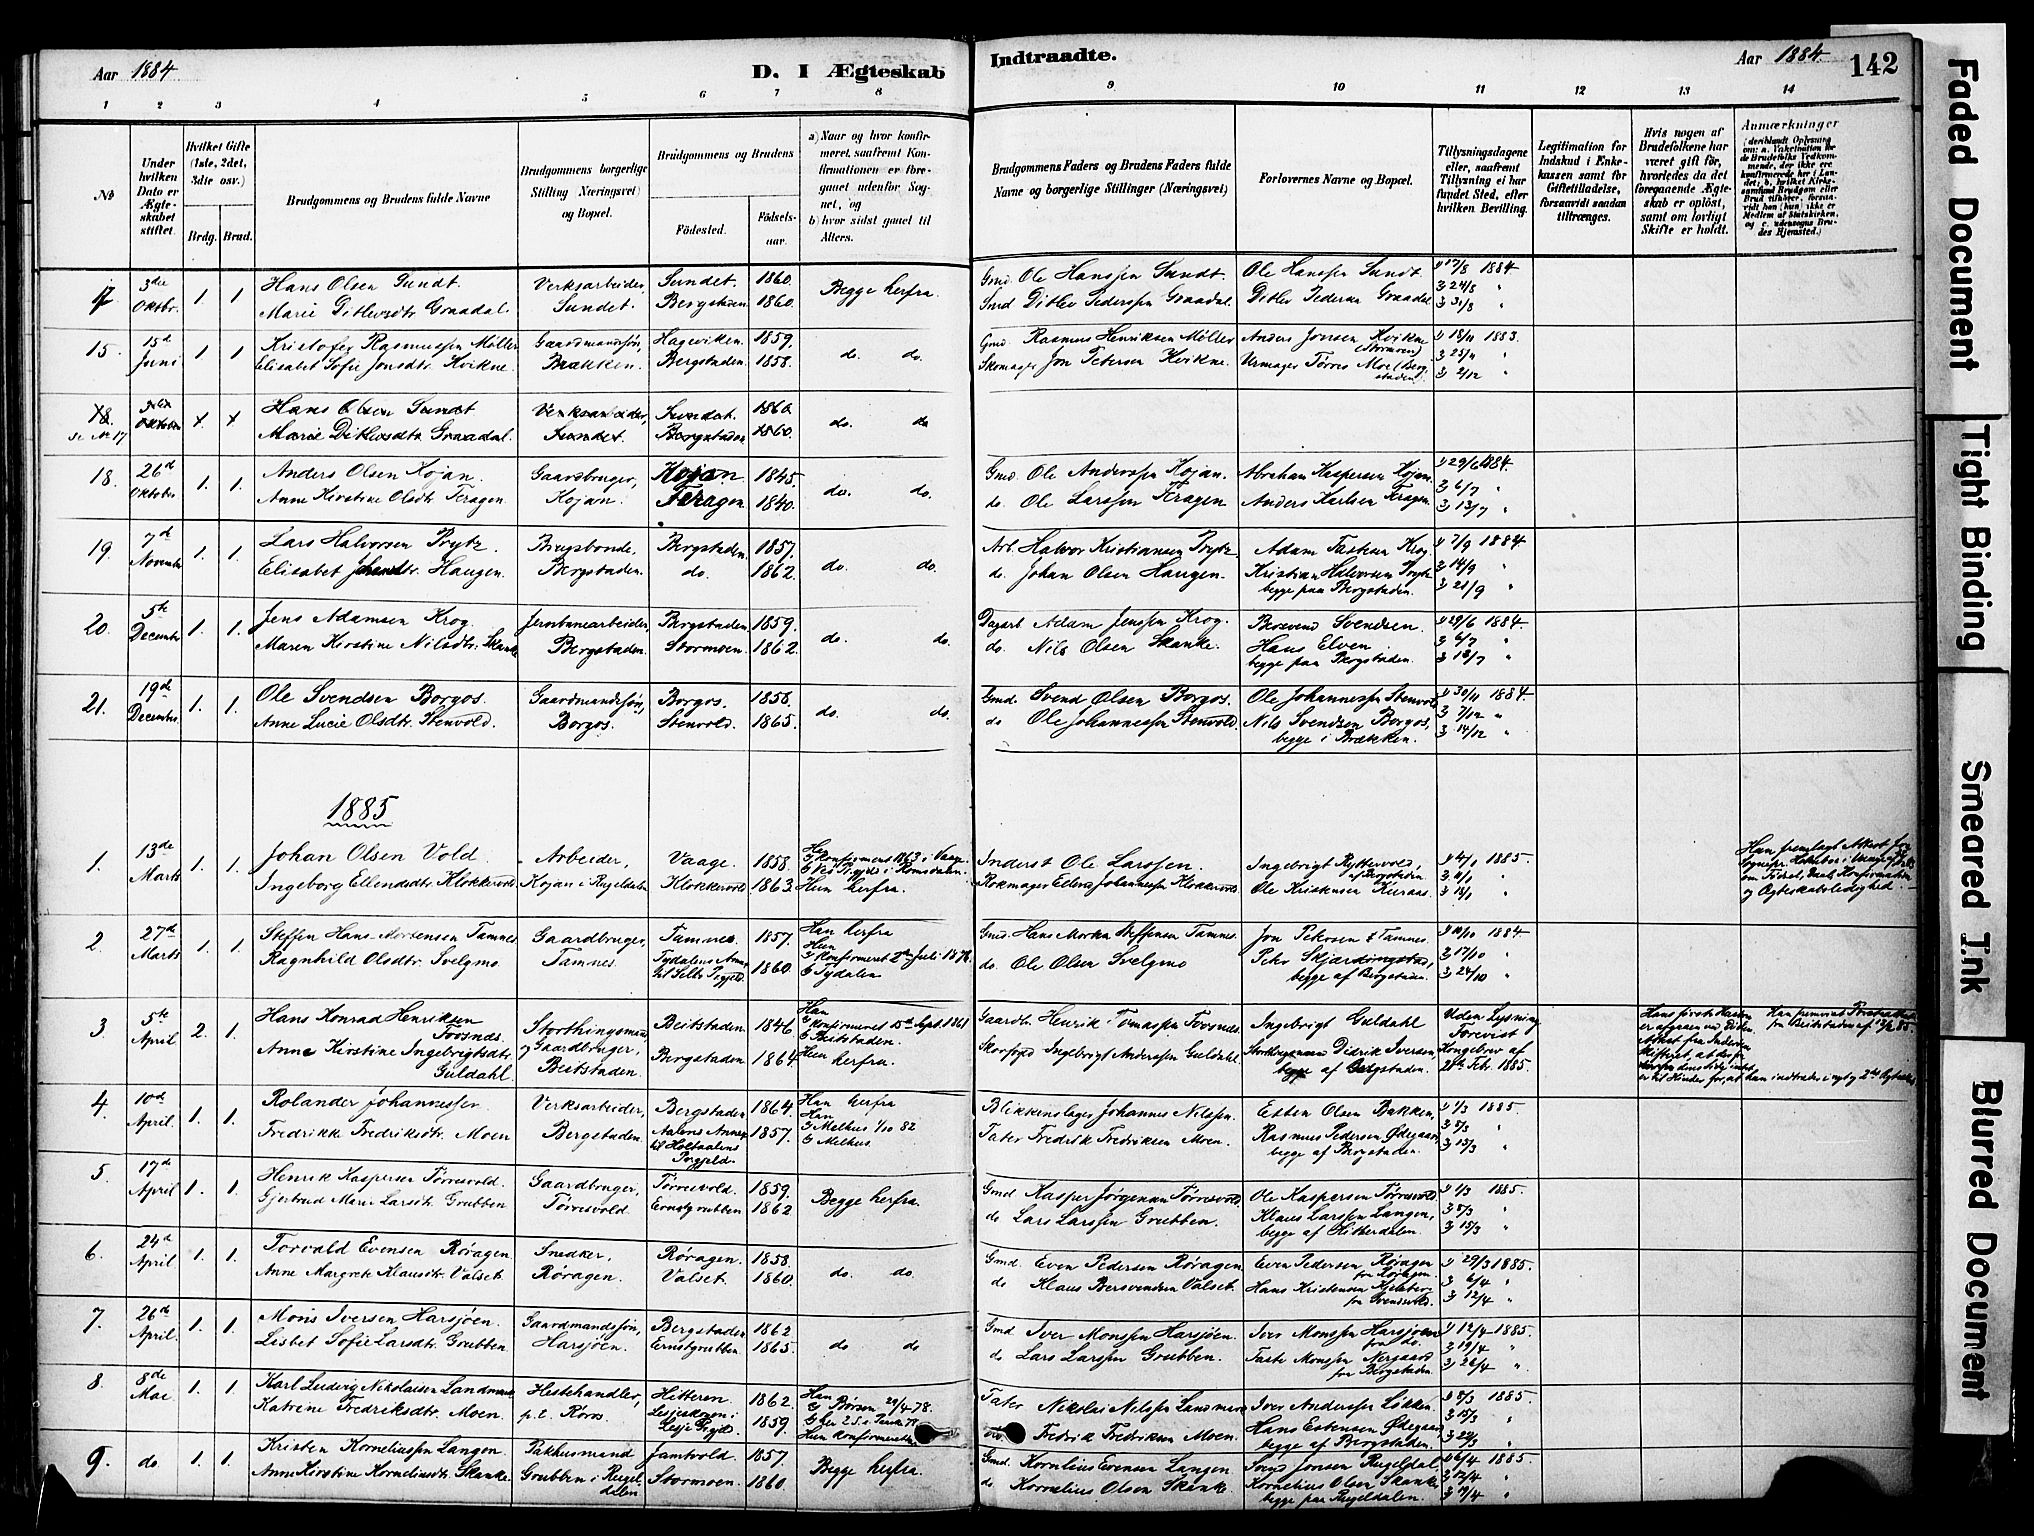 Aar 1884
D. I Ægteskab
Indtraadte.
Aar 1884.
142
1 2 3 4 5 6 7 8 9 10 11 12 13 14
No
Under hvilken Dato er Ægteskabet stiftet.
Hvilket Gifte (1ste, 2det, 3die osv.)
Brdg. Brud.
Brudgommens og Brudens fulde Navne
Brudgommens borgerlige Stilling (Næringsvei) og Bopæl.
Brudgommens og Brudens
Fødested.
Fødselsaar.
a) Naar og hvor konfirmeret, saafremt Konfirmationen er foregaaet udenfor Sognet, og
b) hvor sidst gaaet til Alters.
Brudgommens Faders og Brudens Faders fulde Navne og borgerlige Stillinger (Næringsvei)
Forlovernes Navne og Bopæl.
Tillysningsdagene eller, saafremt Tillysning ei har fundet Sted, efter hvilken Bevilling.
Legitimation for Indskud i Enkekassen samt for Giftetilladelse, forsaavidt saadan tiltrænges.
Hvis nogen af Brudefolkene har været gift før, hvorledes da det foregaaende Ægteskab er opløst, samt om lovligt Skifte er holdt.
Anmærkninger
17 3die Oktbr. 1 1 Hans Olsen Sundt. Verksarbeider, Sundet. 1860. Begge herfra. Gmd. Ole Hanssen Sundt. Ole Hanssen Sundt. 1) 17/8 1884
Marie Ditlevsdtr. Graadal. Sundet. Bergstaden 1860. Smd Ditlev Pederssen Graadal. Ditlev Pedersen Graadal 2) 24/8 "
3) 31/8 "
15. 15d Juni 1 1 Kristofer Rasmussen Møller Gaardmandssøn, Hageviken. 1859. do. do. Gmd. Rasmus Henriksen Møller Anders Jonsen Kvikne (Stormoen) 1) 18/11 1883.
Elisabet Sofie Jonsdtr. Kvikne. Brækken. Bergstaden. 1858. Skomager Jon Petersen Kvikne. Urmager Tørres Moe (Bergstaden). 2) 25/11 "
3) 2/12 "
18. 3die Oktober 1. 1 Hans Olsen Sundt Verksarbeider, Sundet. 1860. do. do
se No 17 Marie Ditlevsdtr. Graadal. Sundet. Bergstaden 1860.
18. 26d Oktober 1. 1. Anders Olsen Kojan. Gaardbruger, Kojan 1845. do. do. Gmd. Ole Anderssen Kojan. Abraham Kaspersen Kojan. 1) 29/6 1884.
Anne Kirstine Olsdtr. Feragen. Kojan. Feragen 1840. do. Ole Larssen Feragen. Anders Karlsen Feragen. 2) 6/7 "
3) 13/7 "
19. 7d Novembr 1. 1. Lars Halvorsen Prytz. Bergsbonde, Bergstaden. 1857. do. do. Arb. Halvor Kristiansen Prytz. Adam Krog. 1) 7/9 1884.
Elisabet Johansdtr. Haugen. Bergstaden. do. 1862. do. Johan Olsen Haugen. Kristian Halvorsen Prytz 2) 14/9 "
begge paa Bergstaden. 3) 21/9 "
20. 5te Decembr 1. 1. Jens Adamsen Krog. Jernbanearbeider, Bergstaden. 1859. do. do. Dagarb. Adam Jenssen Krog. Bersvend Svendsen. 1) 29/6 1884.
Maren Kirstine Nilsdtr. Skanke Bergstaden. Stormoen. 1862. do. Nils Olsen Skanke. Hans Elven. 2) 6/7 "
begge paa Bergstaden. 3) 13/7 "
21. 19de Decembr. 1. 1. Ole Svendsen Borgos. Gaardmandssøn, Borgos. 1858. do. do. Gmd. Svend Olsen Borgos. Ole Johannessen Stenvold 1) 30/11 1884.
Anne Lucie Olsdtr. Stenvold. Borgos. Stenvold. 1865. do Ole Johannessen Stenvold. Nils Svendsen Borgos, 2) 7/12 "
begge i Brækken. 3) 14/12 "
1885
1. 13de Marts 1. 1. Johan Olsen Vold. Arbeider, Vaage. 1858. Han Inderst Ole Larssen. Ingebrigt Ryttervold, af Bergstaden. 1885.
Ingeborg Ellendsdtr. Klokkervold Kojan i Rugeldalen Klokkervold 1863. Hun herfra. Ole Kristensen Kuraas.
og Ægteskabsledighed.
2. 27de Marts 1. 1. Steffen Hans Mortensen Tamnes. Gaardbruger, Tamnes. 1857. Han herfra Gmd. Hans Morten Steffensen Tamnes. Jon Petersen Tamnes. 1) 10/10 1884.
Ragnhild Olsdtr. Svelgmo. Tamnes. Tydalens Annex til Selbo Prgjeld. 1860. Hun a) konfirmeret 2den Juli 1876 b) Tydalen do. Ole Olsen Svelgmo Peter Skjærdingstad, 2) 17/10 "
begge af Bergstaden. 3) 24/10 "
3. 5te April 2. 1. Hans Konrad Henriksen Fossnes. Storthingsmand og Gaardbruger, Beitstaden. 1846 Han a) konfirmeret 15de Sept. 1861 b) Beitstaden. Gaardbr. Henrik Tomassen Fossnes. Ingebrigt Guldahl Uden Lysning
Anne Kirstine Ingebrigtsdtr. Guldahl. Beitstaden. Bergstaden 1864. Hun herfra. Ingebrigt Anderssen Guldahl. Storthingsmand Didrik Iversen, begge af Bergstaden. Forevist Kongebrev af 21de Febr. 1885.
4. 10d April. 1. 1. Rolander Johannessen. Verksarbeider, Bergstaden 1864. Han herfra Blikkenslager Johannes Nilssen. Esten Olsen Bakken, 1) 1/3 1885.
Fredrikke Fredriksdtr. Moen Bergstaden. Aalens Annex til Holtaalens Prgjeld. 1857. a) Melhus 1/10 82 b) Melhus. Tater Fredrik Fredriksen Moen. Rasmus Pedersen Ødegaard, 2) 8/3 "
begge af Bergstaden. 3) 15/3 "
5. 17de April 1. 1. Henrik Kaspersen Tørresvold. Gaardbruger, Tørresvold. 1859. Begge herfra. Gmd. Kasper Jørgensen Tørresvold. Ole Kaspersen Tørresvold 1) 1/3 1885.
Gjertrud Marie Larsdtr. Grubben Tørresvold. Ernstgrubben 1862 do Lars Larssen Grubben. Klaus Larssen Langen, 2) 8/3 "
begge af Hitterdalen. 3) 15/3 "
6. 24de April 1. 1. Torvald Evensen Røragen. Snedker, Røragen. 1858. do. do. Gmd. Even Pedersen Røragen Even Pedersen Røragen fra Røragen. 1) 29/3 1885.
Anne Margrete Klausdtr. Valset. Røragen. Valset. 1860. do Klaus Bersvendsen Valset. Hans Kristensen 2) 6/4 "
3) 12/4 "
7. 26de April. 1. 1. Mons Iversen Harsjøen. Gaardmandssøn, Bergstaden 1862 do do Gmd. Iver Monssen Harsjøen. Iver Monssen Harsjøen fra do. 1) 12/4 1885.
Lisbet Sofie Larsdtr. Grubben. Harsjøen. Ernstgrubben. 1865. do Lars Larssen Grubben. Monssen Nergaard fra Bergstaden. 2) 19/4 "
3) 26/4 "
8. 8de Mai. 1. 1. Karl Ludvig Nikolaisen Landmark Hestehandler, Hitteren. 1862. Han a) Børsen 29/4 78. Tater Nikolai Nilssen Landmark Iver Anderssen Løkken. 1) 8/3 1885.
Katrine Fredriksdtr. Moen. p.t. Røros Lesjeskogen i Lesje Prgjld 1859. Fredrik Fredriksen Moen. Hans Estensen Ødegaard 2) 15/3 "
begge af Bergstaden. 3) 22/3 "
9. do. 1. 1. Kristen Korneliussen Langen. Pakhusmand Jamtvold. 1857. Begge herfra. Gmd. Kornelius Evensen Langen Svend Jonsen Rugeldal 1) 6/4 1885.
Anne Kirstine Korneliusdtr. Skanke. Grubben i Rugeldalen Stormoen. 1860. do. Kornelius Olsen Skanke. Kornelius Olsen Skanke 2) 12/4 "
begge paa Rugeldalen. 3) 19/4 "
Faded Document
Tight Binding
Smeared Ink
Blurred Document